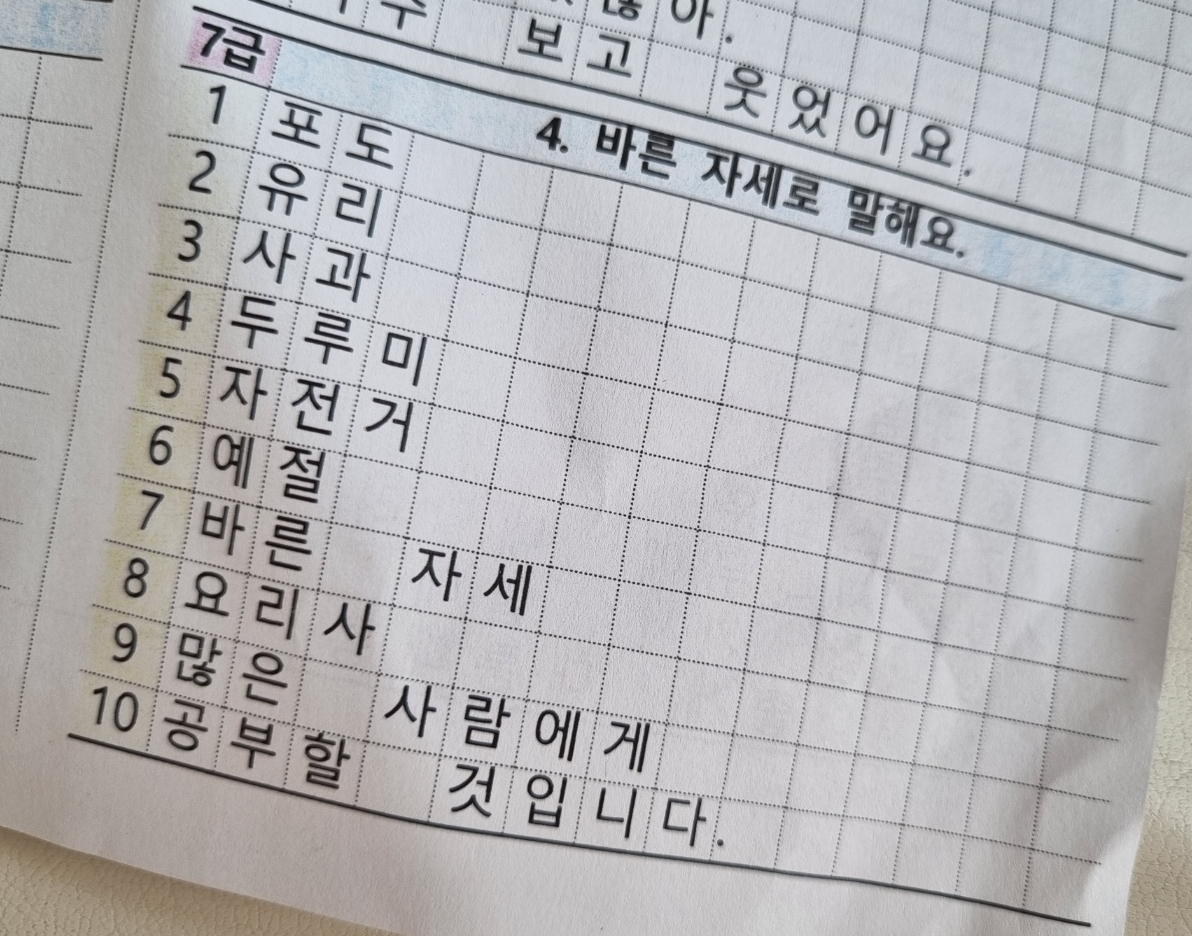 아.
보고 웃었어요.
7급 4. 바른 자세로 말해요.
1 포도
2 유리
3 사과
4 두루미
5 자전거
6 예절
7 바른 자세
8 요리사
9 많은 사람에게
10 공부할 것입니다.